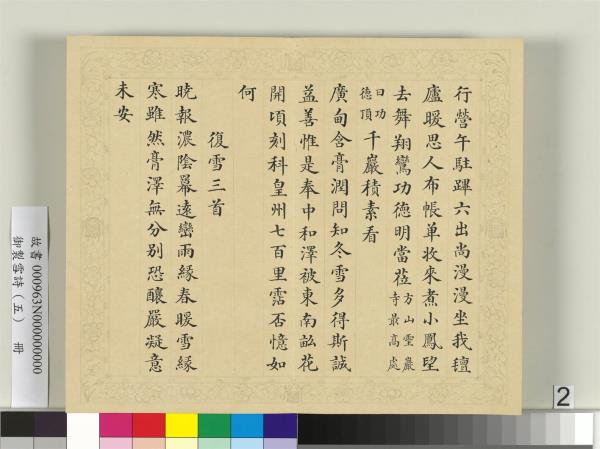 行營午駐蹕六出尚漫漫坐我氊
廬暖思人布帳單收來煮小鳳望
去舞翔鸞功德明當蒞方山靈巖寺最高處
曰功德頂千巖積素看
廣甸含膏潤問知冬雪多得斯誠
益善惟是奉中和澤被東南畝花
開頃刻科皇州七百里霑否憶如
何
復雪三首
曉報濃陰羃遠巒雨緣春暖雪緣
寒雖然膏澤無分別恐釀嚴凝意
未安
故書 000963N000000000
御製雪詩（五） 冊
2